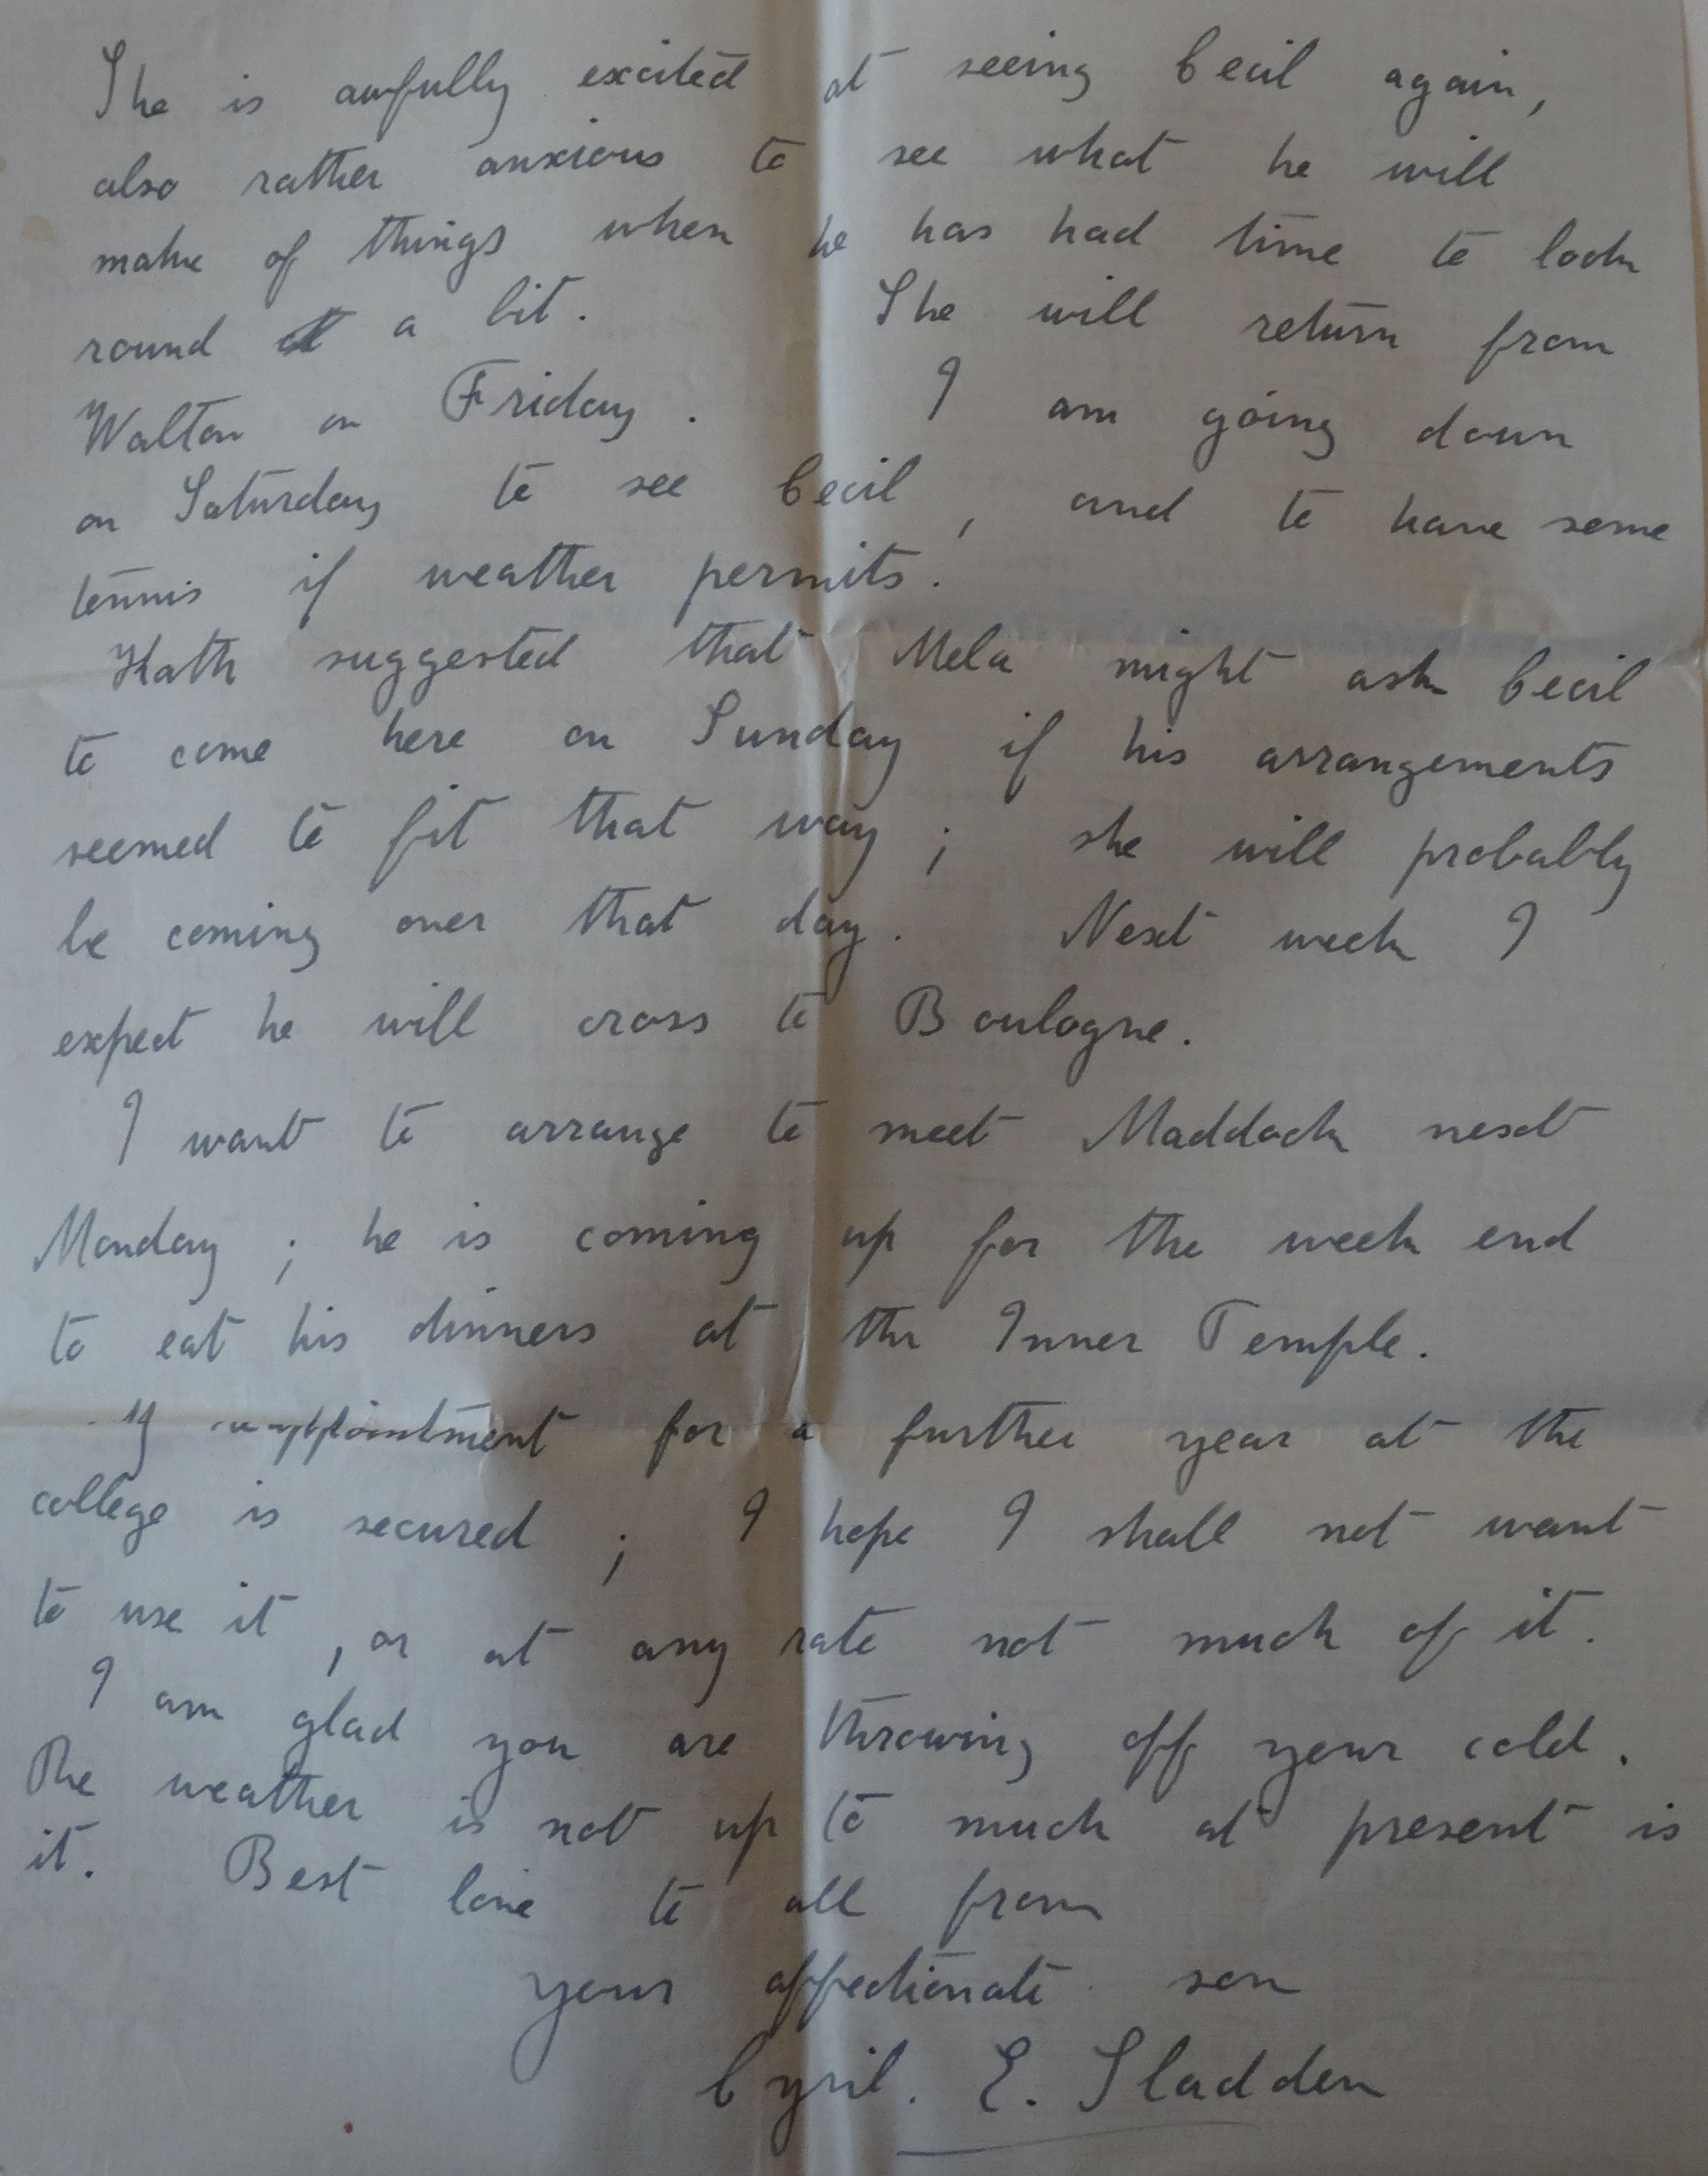 She is awfully excited at seeing Cecil again,
also rather anxious to see what he will
make of things when he has had time to look
round a bit. She will return from
Walton on Friday. I am going down
on Saturday to see Cecil, and to have some
tennis if weather permits.
Kath suggested that Mela might ask Cecil
to come here on Sunday if his arrangements
seemed to fit that way; she will probably
be coming over that day. Next week I
expect he will cross to Boulogne.
I want to arrange to meet Maddock next
Monday; he is coming up for the week end
to eat his dinners at the Inner Temple.
My appointment for a further year at the
college is secured; I hope I shall not want
to use it, or at any rate not much of it.
I am glad you are throwing off your cold.
The weather is not up to much at present is
it. Best love to all from
your affectionate son
Cyril. E. Sladden